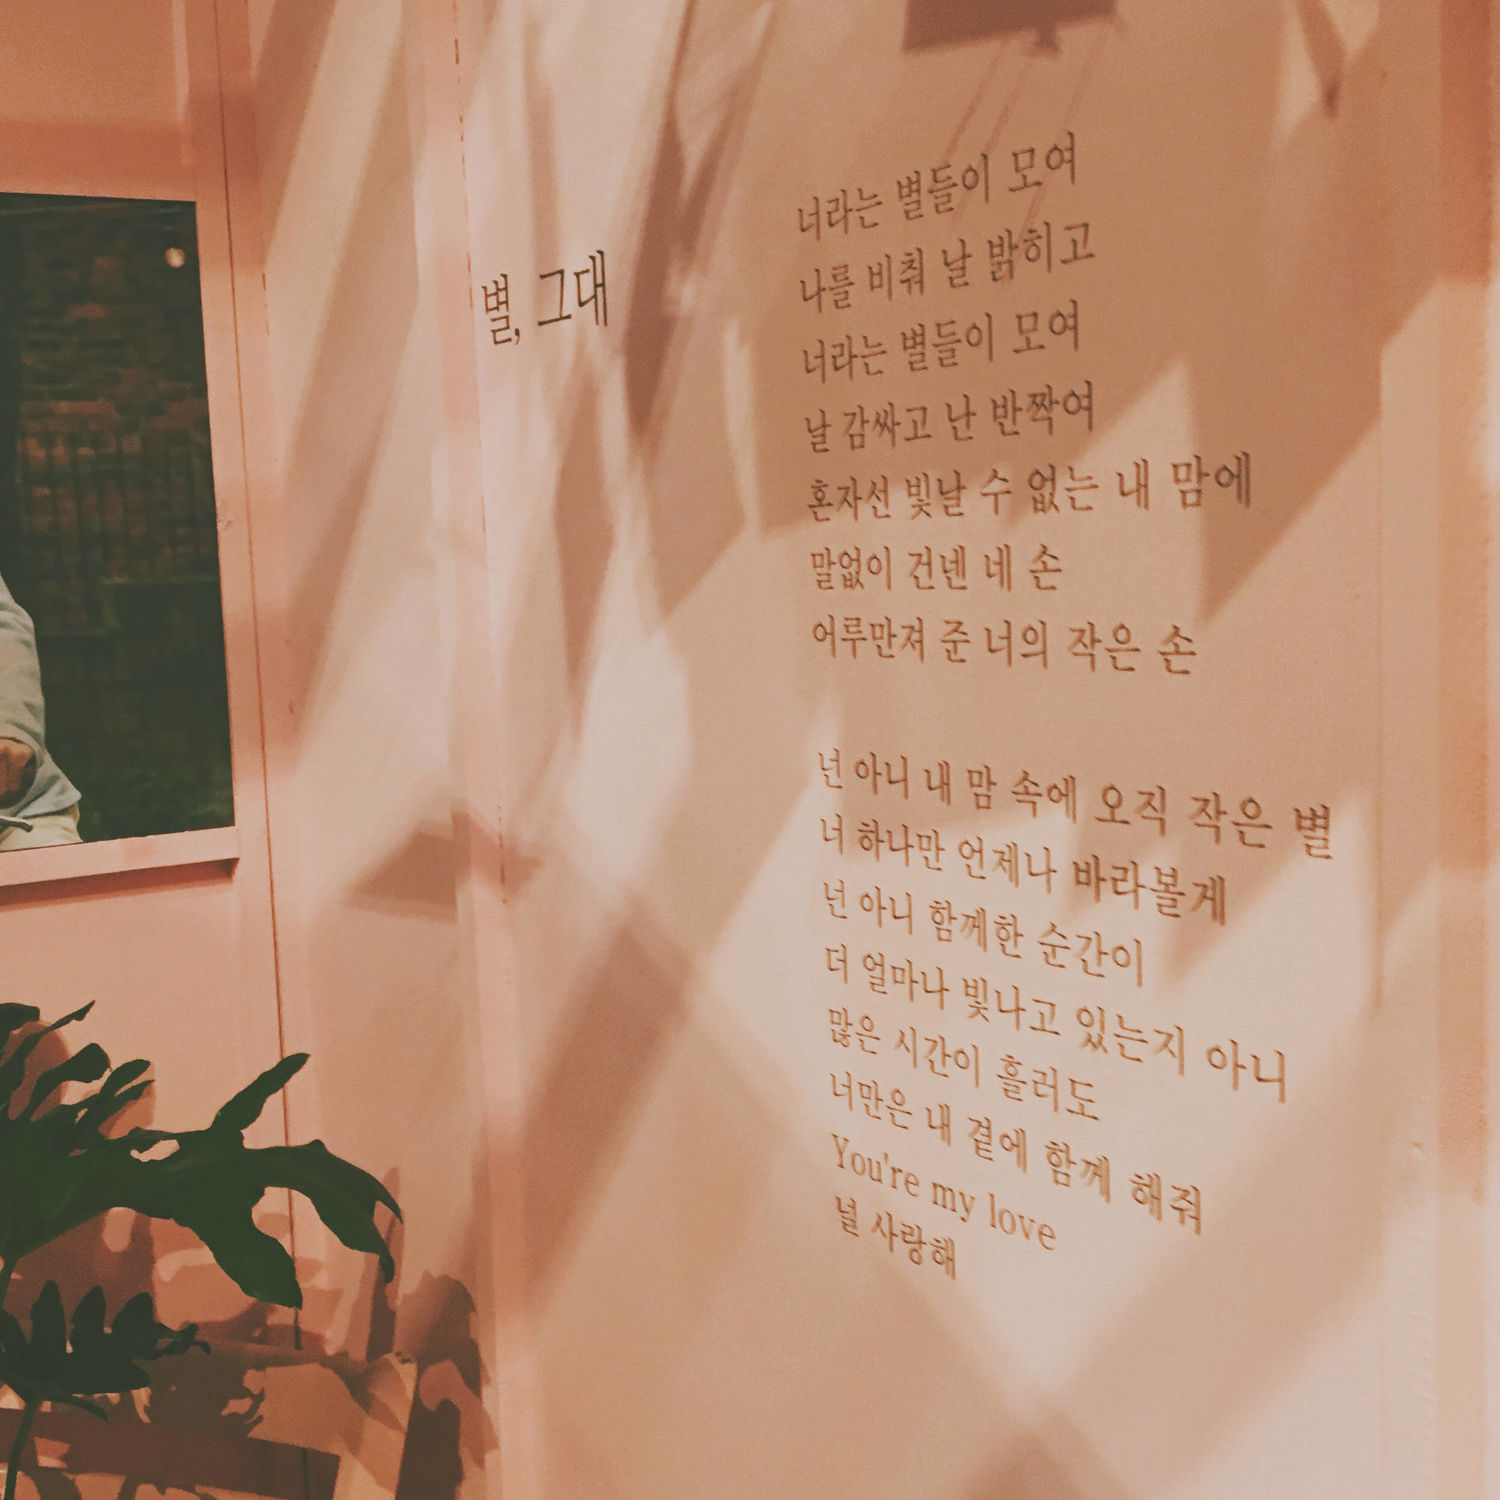 별, 그대
너라는 별들이 모여
나를 비춰 날 밝히고
너라는 별들이 모여
날 감싸고 난 반짝여
혼자선 빛날 수 없는 내 맘에
말없이 건넨 네 손
어루만져 준 너의 작은 손
넌 아니 내 맘 속에 오직 작은 별
너 하나만 언제나 바라볼게
넌 아니 함께한 순간이
더 얼마나 빛나고 있는지 아니
많은 시간이 흘러도
너만은 내 곁에 함께 해줘
You're my love
널 사랑해